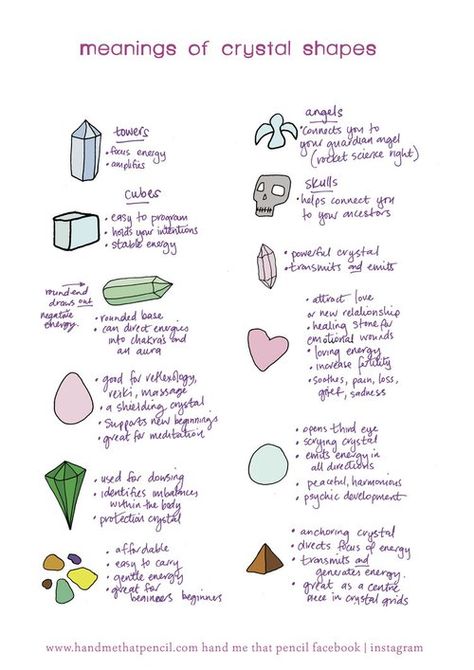 meanings of crystal shapes
towers
• focus energy
• amplifies
cubes
• easy to program
• holds your intentions
• stable energy
round end
draws out
negative
energy.
• rounded base
• can direct energies
into chakras and
an aura
• good for reflexology,
reiki, massage
• a shielding crystal
• supports new beginnings
• great for meditation
• used for dowsing
• identifies imbalances
within the body
• protection crystal
• affordable
• easy to carry
• gentle energy
• great for
beginners beginners
angels
• connects you to
your guardian angel
(rocket science right)
skulls
• helps connect you
to your ancestors
• powerful crystal
• transmits and emits
• attract love
or new relationship
• healing stone for
emotional wounds
• loving energy
• increase fertility
• soothes, pain, loss,
grief, sadness
• opens third eye
• scrying crystal
• emits energy in
all directions
• peaceful, harmonious
• psychic development
• anchoring crystal
• directs focus of energy
• transmits and
generates energy.
• great as a centre
piece in crystal grids
www.handmethatpencil.com hand me that pencil facebook | instagram